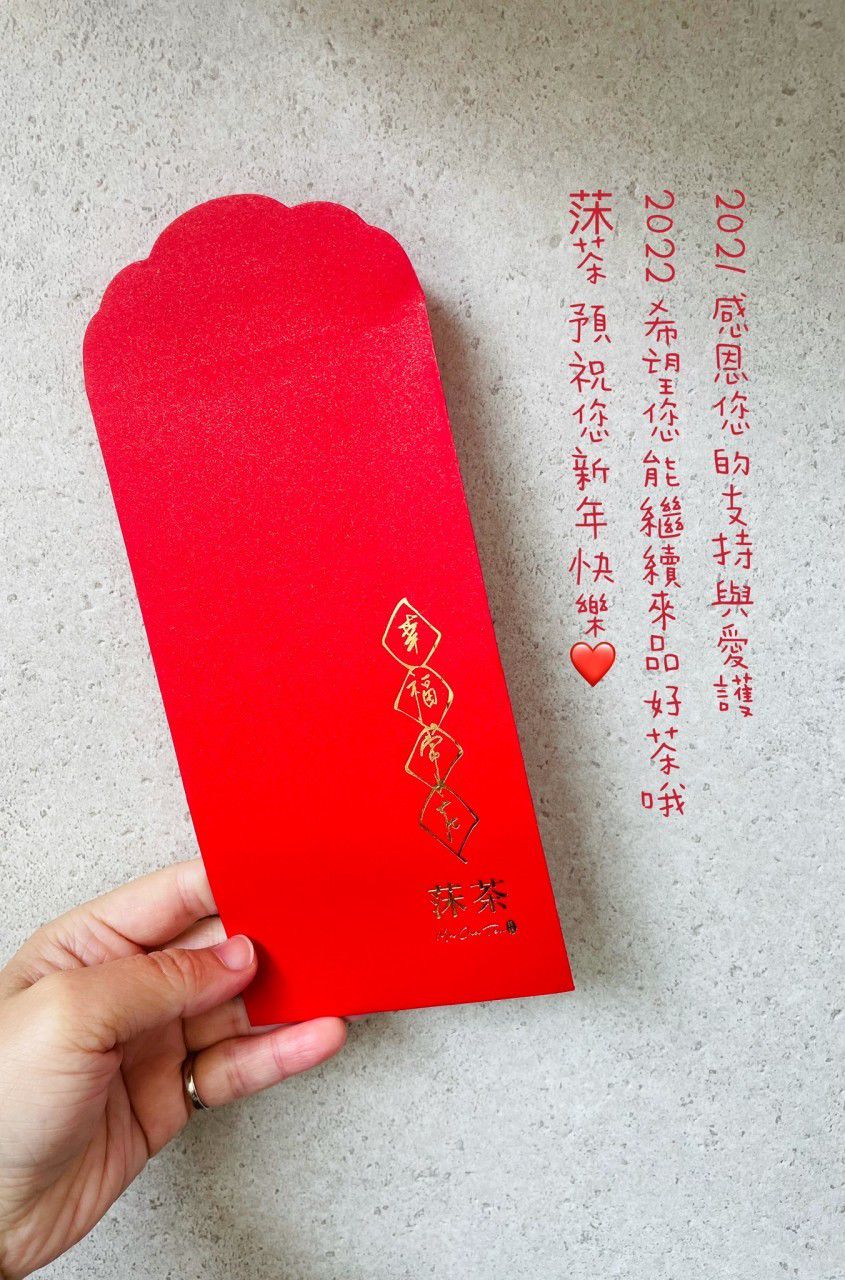 2021 感恩您的支持與愛護
2022 希望您能繼續來品好茶哦
茶 預祝您新年快樂❤️
幸福常在
茶